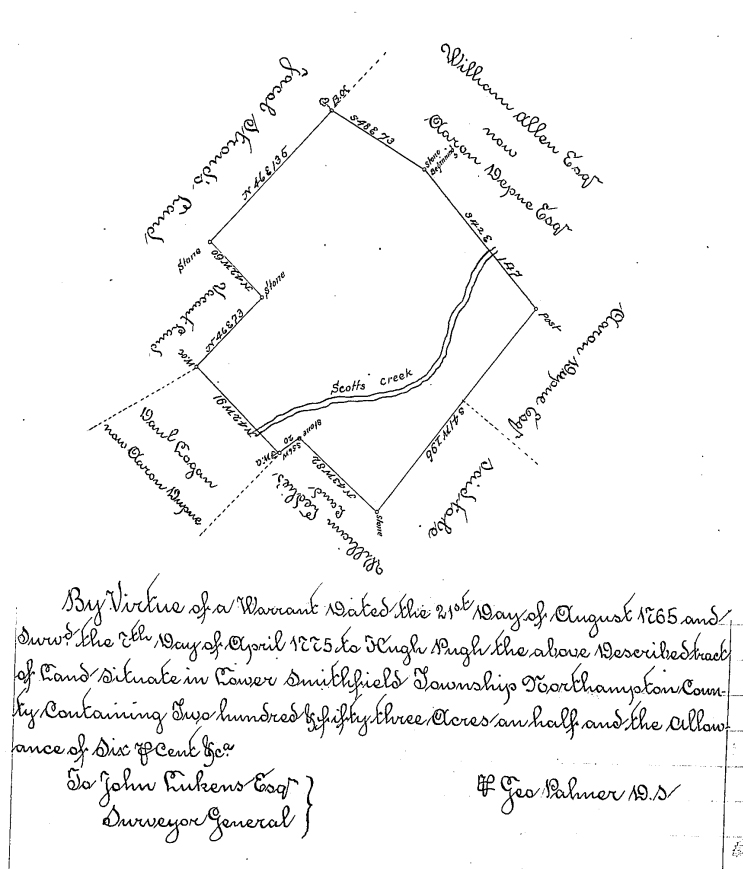 Jacob Stroud's Land
B.O.
S48E 73
William Allen Esqr
now
Aaron Depue Esqr
Stone
Beginning
N 46 E 135
S 42 E
147
Stone
N 42 W 60
Stone
Vacant Land
N 46 E 73
W.O.
Post
Aaron Depue Esqr
Scotts creek
N 42 W 91
Daul Logan
now Aaron Depue
Stone
20
S 56 W
N 43 W 82
William Leslie's
Land
S 41 W 196
Stone
By Virtue of a Warrant Dated the 21st Day of August 1765 and
Survd. the 7th Day of April 1775 to Hugh Pugh the above Described tract
of Land Situate in Lower Smithfield Township Northampton Coun-
ty Containing Two hundred & fifty three Acres an half and the Allow-
ance of Six ⅌ Cent &ca
To John Lukens Esqr
Surveyor General
⅌ Geo Palmer D.S